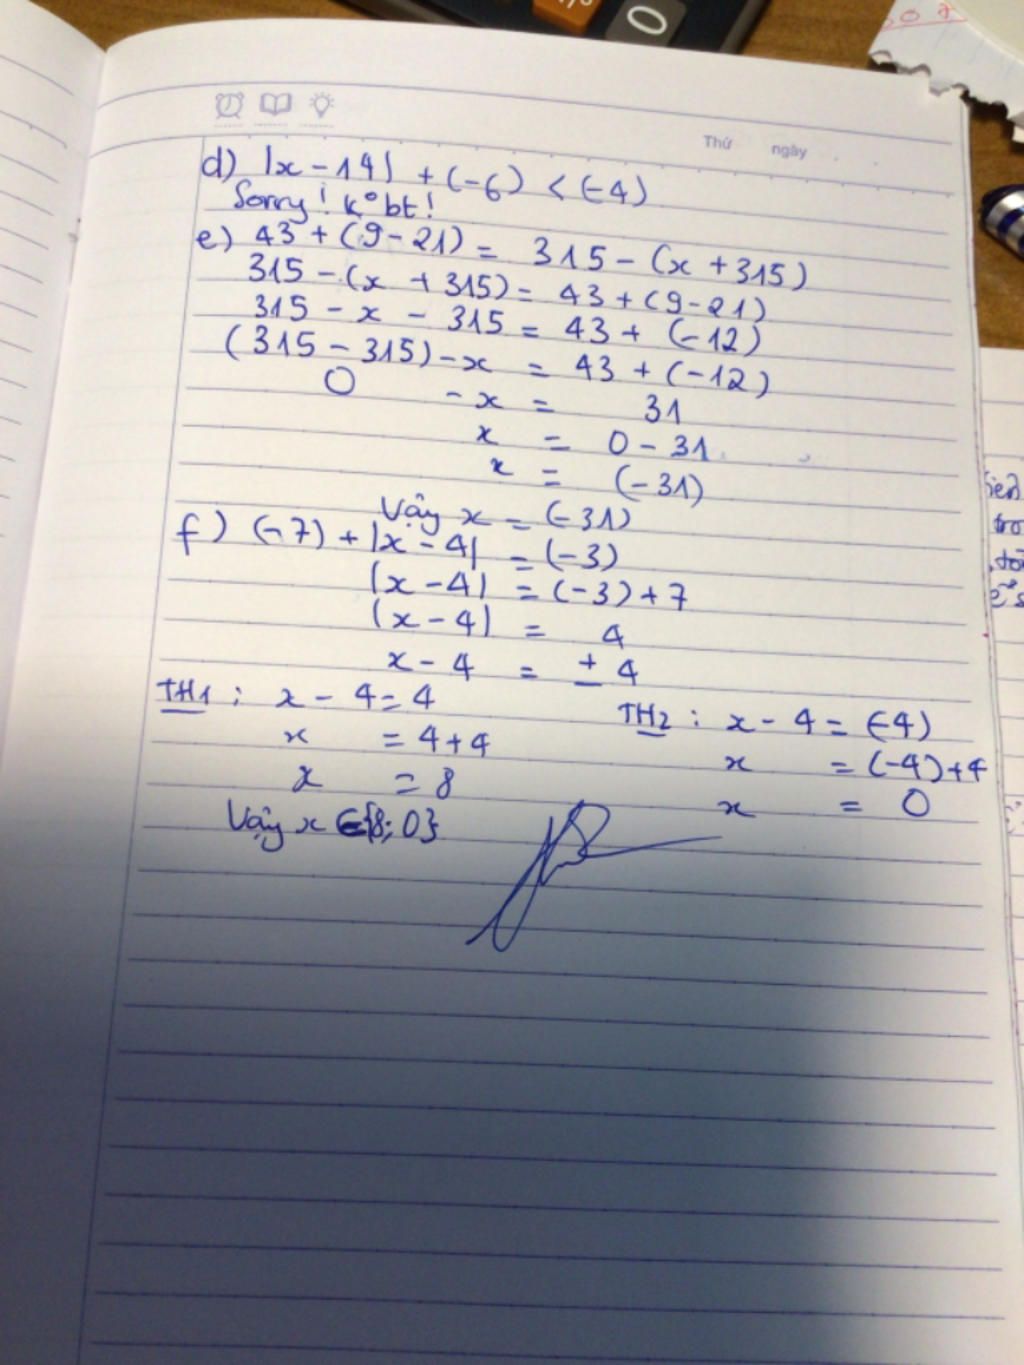 0
Thứ ngày
d) |x - 14| + (-6) < (-4)
Sorry! k° bt!
e) 43 + (9 - 21) = 315 - (x + 315)
315 - (x + 315) = 43 + (9 - 21)
315 - x - 315 = 43 + (-12)
(315 - 315) - x = 43 + (-12)
0 - x = 31
x = 0 - 31
x = (-31)
Vậy x = (-31)
f) (-7) + |x - 4| = (-3)
|x - 4| = (-3) + 7
|x - 4| = 4
x - 4 = ± 4
TH1 : x - 4 = 4
x = 4 + 4
x = 8
TH2 : x - 4 = (-4)
x = (-4) + 4
x = 0
Vậy x ∈ {8; 0}